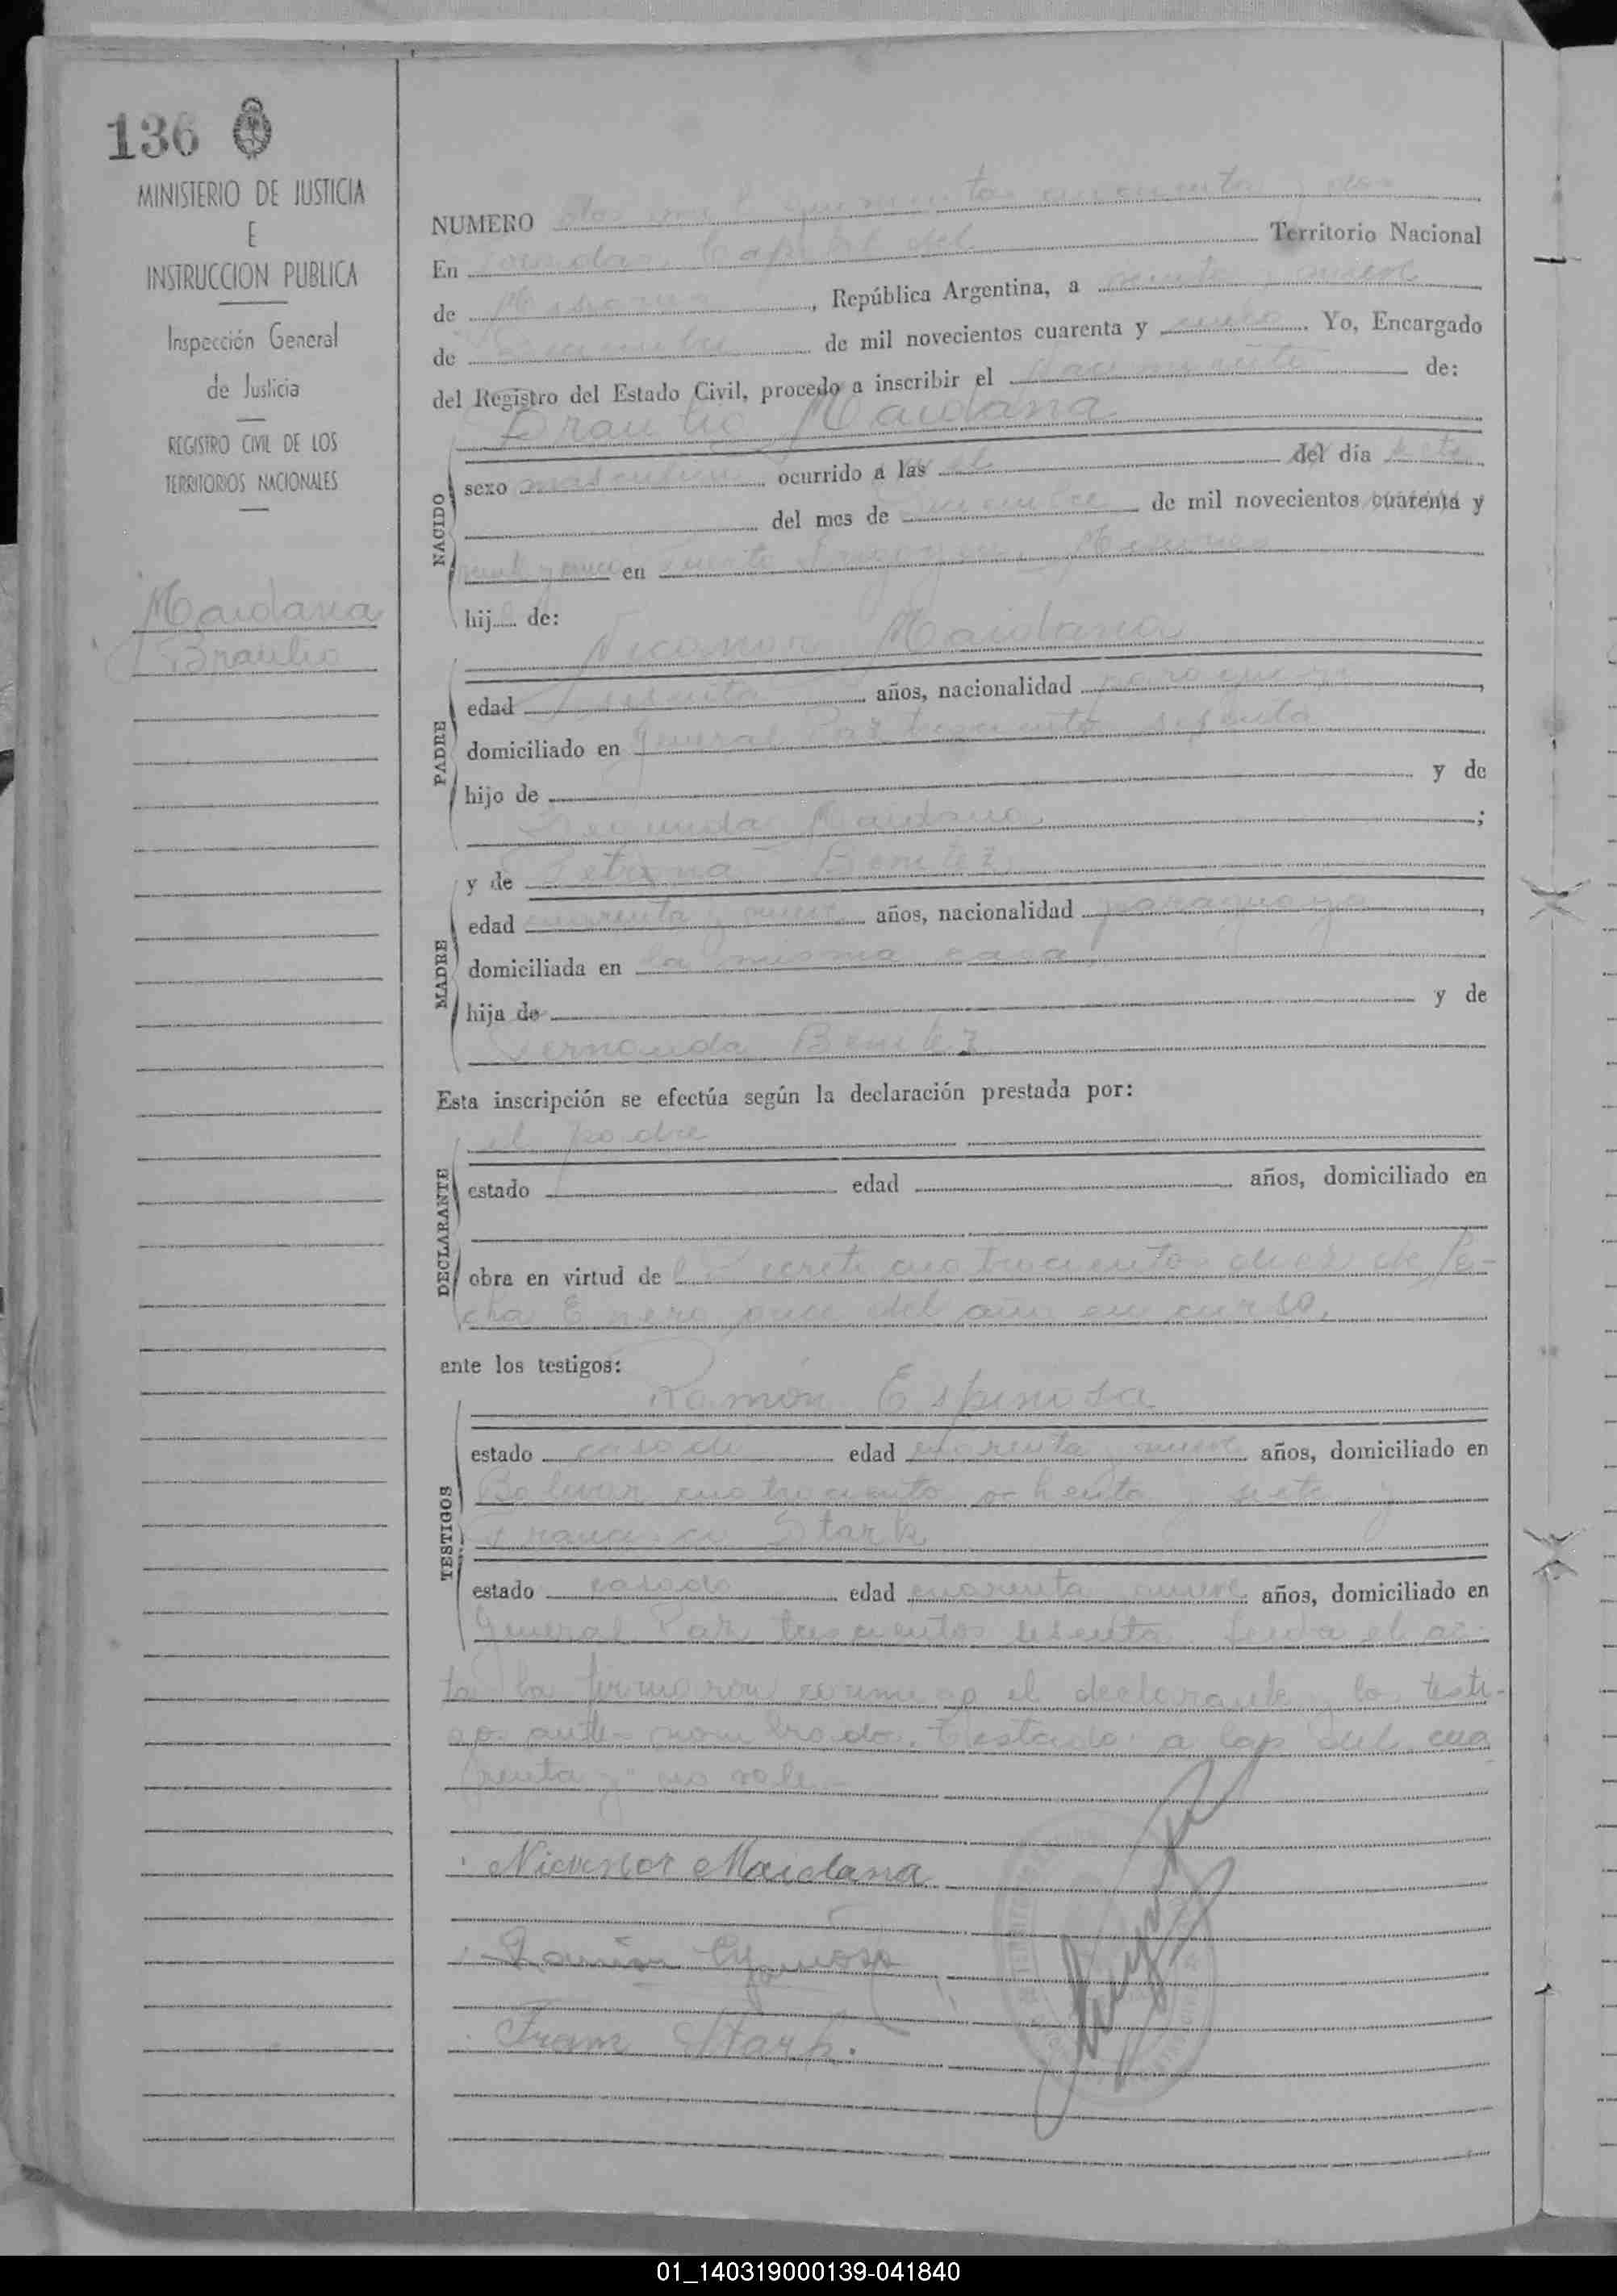 136
MINISTERIO DE JUSTICIA
E
INSTRUCCION PUBLICA
Inspección General
de Justicia
REGISTRO CIVIL DE LOS
TERRITORIOS NACIONALES
Maidana
Braulio
NUMERO dos mil quinientos cincuenta y dos
En Posadas Capital del Territorio Nacional
de Misiones, República Argentina, a veinte y nueve
de de mil novecientos cuarenta y cinco. Yo, Encargado
del Registro del Estado Civil, procedo a inscribir el nacimiento de:
Braulio Maidana
NACIDO
sexo masculino, ocurrido a las el del dia siete
del mes de de mil novecientos cuarenta y
en Puerto Misiones
hij de:
Nicanor Maidana
PADRE
edad sesenta años, nacionalidad paraguaya,
domiciliado en General Paz trescientos sesenta
hijo de y de
Segunda Maidana;
y de Petrona Benitez
MADRE
edad cuarenta y nueve años, nacionalidad paraguaya,
domiciliada en la misma casa
hija de y de
Fernanda Benitez
Esta inscripción se efectúa según la declaración prestada por:
el padre
DECLARANTE
estado edad años, domiciliado en
obra en virtud de l Decreto cuatrocientos diez de fe-
cha Enero once del año en curso,
ante los testigos:
Ramón Espinosa
TESTIGOS
estado casado edad cuarenta y nueve años, domiciliado en
Bolivar cuatrocientos ochenta y siete y
Francisco Stark
estado casado edad cuarenta y nueve años, domiciliado en
General Paz trescientos sesenta. Leida el ac-
ta la firmaron conmigo el declarante y los testi-
gos antes nombrados. Testado: a las del cua
renta y: no vale.-
Nicanor Maidana
Ramón Espinosa
Franz Stark.
01_140319000139-041840